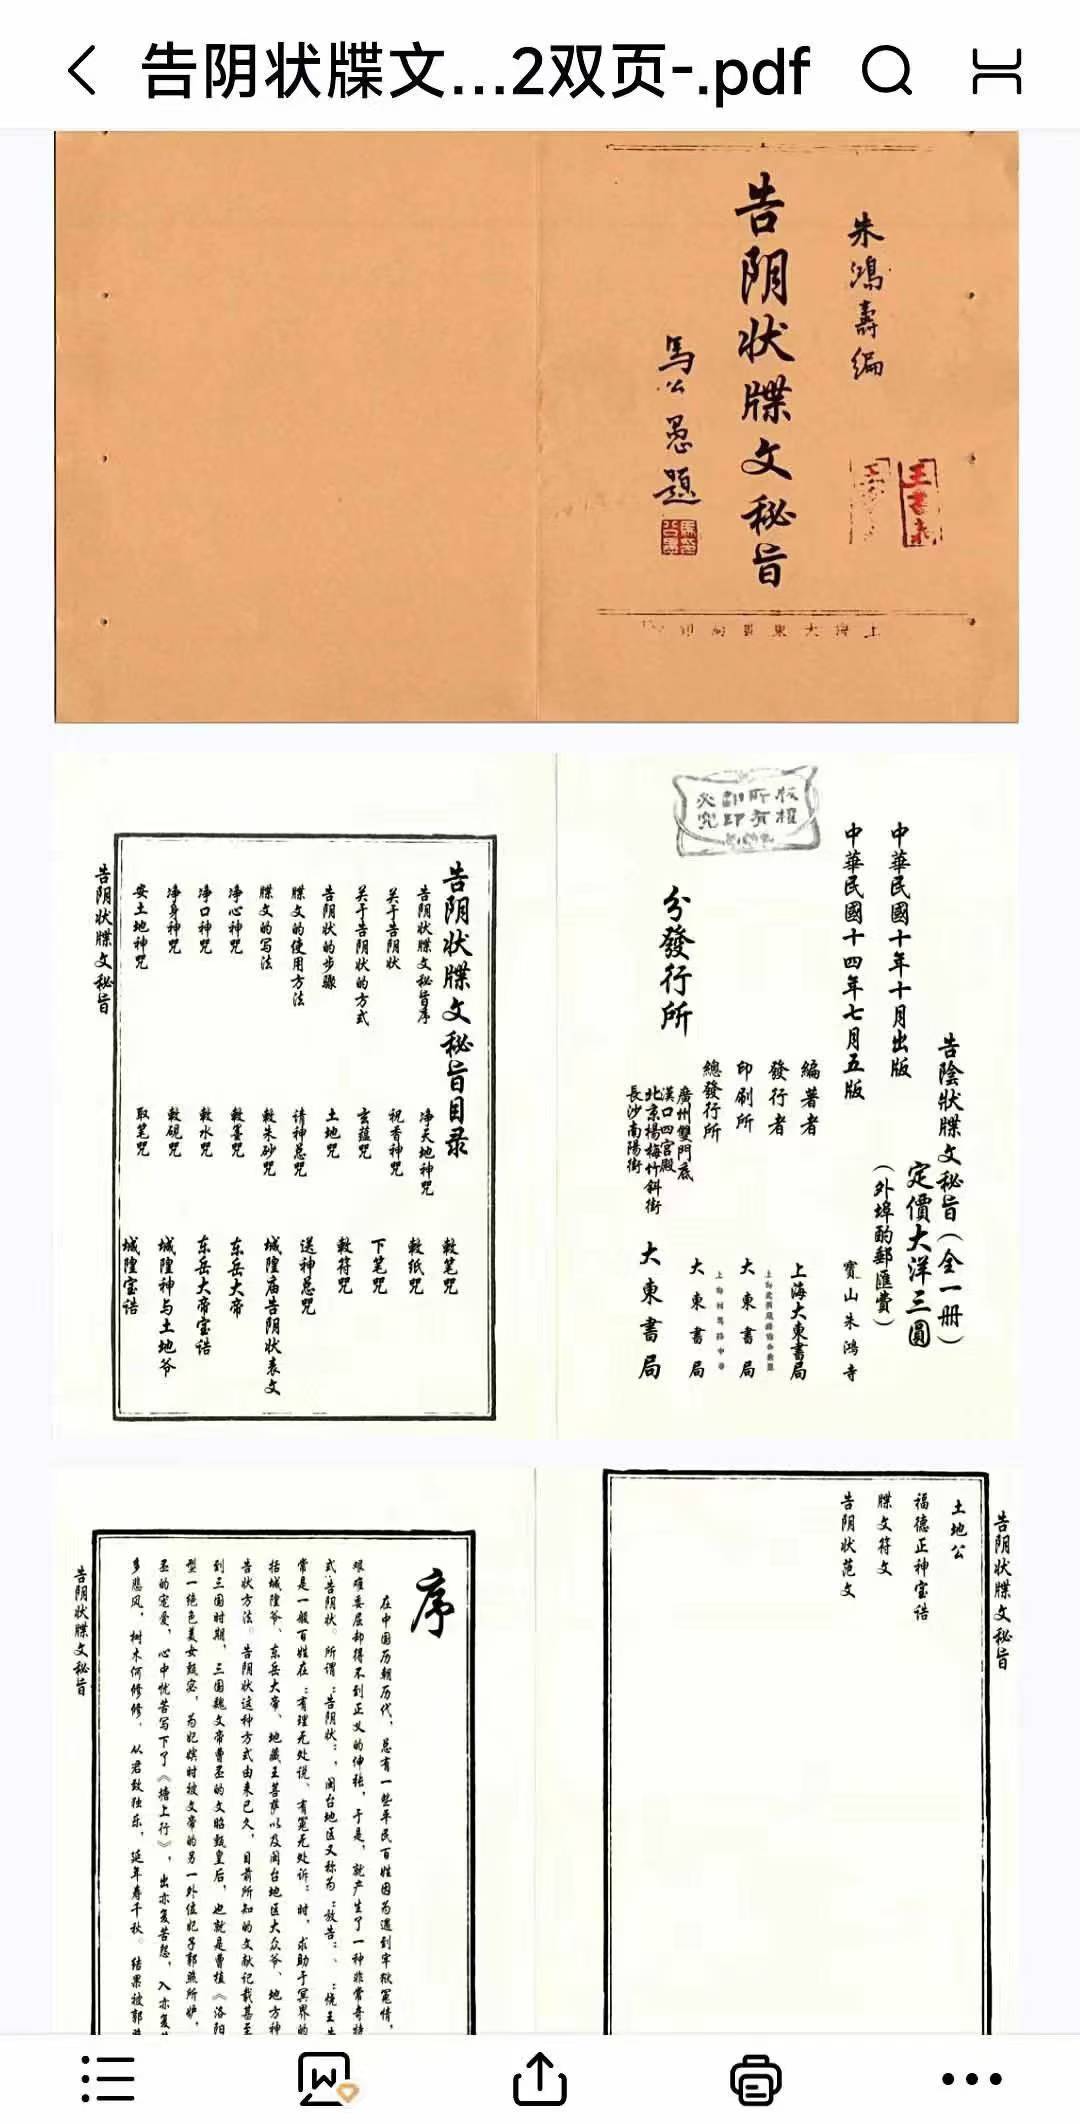 告阴状牒文...2双页-.pdf
朱鴻壽编
告阴状牒文秘旨
馬公愚題
上海大東書局印
版權所有翻印必究
告陰狀牒文秘旨（全一册）
定價大洋三圓
（外埠酌郵匯費）
中華民國十年十月出版
中華民國十四年七月五版
編著者 寳山朱鴻寺
發行者 上海大東書局
印刷所 大東書局
總發行所 大東書局
分發行所
廣州雙門底
漢口四宫殿
北京楊梅竹斜街
長沙南陽街
大東書局
告阴状牒文秘旨目录
告阴状牒文秘旨序
关于告阴状
关于告阴状的方式
告阴状的步骤
牒文的使用方法
牒文的写法
净心神咒
净口神咒
净身神咒
安土地神咒
净天地神咒
祝香神咒
玄蕴咒
土地咒
请神总咒
敕朱砂咒
敕墨咒
敕水咒
敕砚咒
取笔咒
敕笔咒
敕纸咒
下笔咒
敕符咒
送神总咒
城隍庙告阴状表文
东岳大帝
东岳大帝宝诰
城隍神与土地爷
城隍宝诰
告阴状牒文秘旨
告阴状牒文秘旨
土地公
福德正神宝诰
牒文符文
告阴状范文
序
在中国历朝历代，总有一些平民百姓因为遇到牢狱冤情，
艰难委屈却得不到正义的伸张，于是，就产生了一种非常奇特
式:告阴状。所谓:告阴状:，闽台地区又称为:放告:、:
常是一般百姓在:有理无处说、有冤无处诉:时，求助于冥界的
括城隍爷、东岳大帝、地藏王菩萨以及闽台地区大众爷、地方神
告状方法。告阴状这种方式由来已久，目前所知的文献记载甚至
到三国时期，三国魏文帝曹丕的文昭甄皇后，也就是曹植《洛阳
型一绝色美女甄宓，为妃嫔时被文帝的另一外位妃子郭照所妒，
丕的宠爱，心中忧苦写下了《塘上行》，出亦复苦愁，入亦复
多悲风，树木何修修，从君致独乐，延年寿千秋。结果被郭
告阴状牒文秘旨